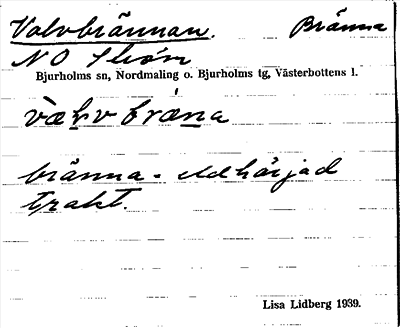 Valvbrännan. Bränna
NO
Bjurholms sn, Nordmaling o. Bjurholms tg, Västerbottens l.
bräna
bränna - eldhärjad
trakt.
Lisa Lidberg 1939.